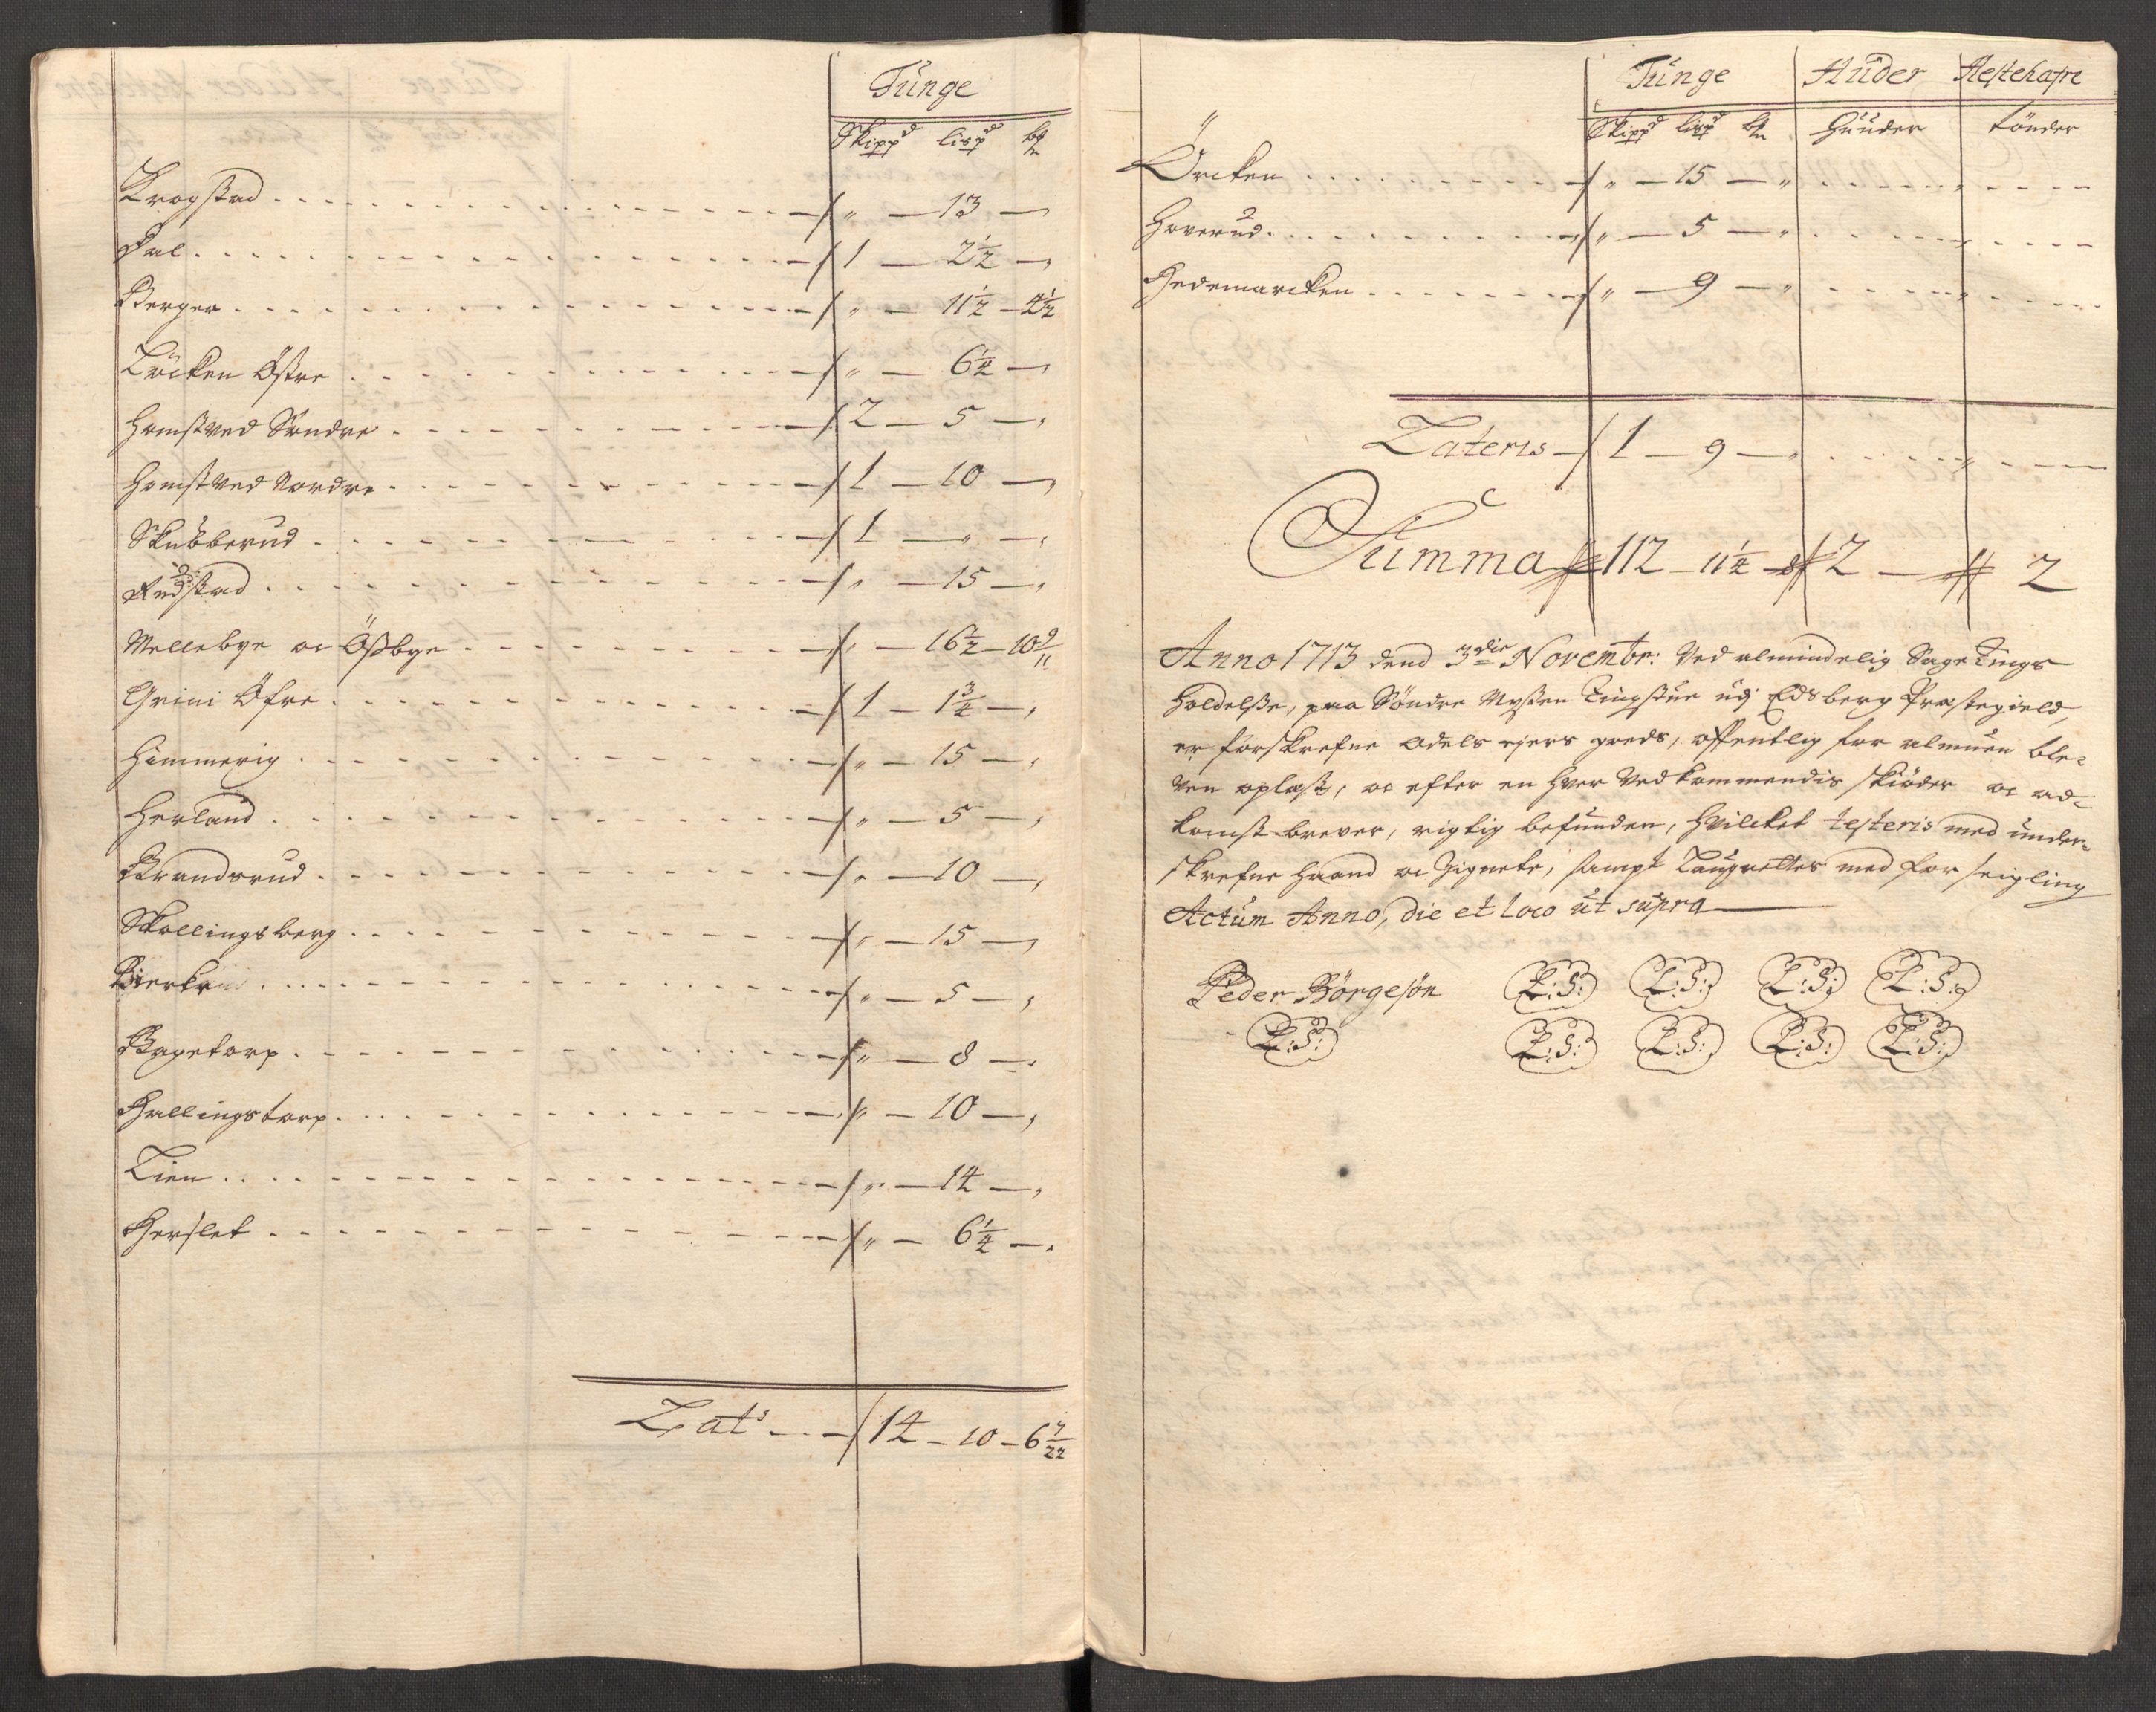 Tünge
Skipp^d lisp^d
Krogstad . . . „ — 13 —
Dal . . . 1 — 2½ — „
Berger . . . „ — 11½ — 4½
Löcken Östre . . . „ — 6¼ — „
Homstved Söndre . . . 2 — 5 — „
Homstved Nordre . . . 1 — 10 — „
Skubberud . . . 1 — „ — „
Rudstad . . . „ — 15 — „
Mellebye oc Östbye . . . „ — 16½ — 10 9/11
Grini Öfre . . . 1 — 1¾ — „
Himmerig . . . „ — 15 — „
Herland . . . „ — 5 — „
Brandsrud . . . „ — 10 — „
Skollingsberg . . . „ — 15 — „
. . . „ — 5 — „
Bagetorp . . . „ — 8 — „
Hallingstorp . . . „ — 10 — „
Lien . . . „ — 14 — „
Herslet . . . „ — 6¼ — „
Lat^s . . . 14 — 10 — 6 7/22
Tünge Hüder Hestehafre
Skipp^d lisp^d Hüuder tönder
Örcken . . . „ — 15 — „ . . . „ . . .
Hoverud . . . „ — 5 — „ . . . „ . . .
Hedemarcken . . . „ — 9 — „ . . . „ . . .
Lateris — 1 — 9 — „ . . . „ . . .
Summa 112 — 11½ — 2 — 2
Anno 1713 dend 3^die Novembr: Ved almindelig Sage Tings
holdelsse, paa Söndre Myssen Tingstue udj Edsberg Præstegield,
er forskrefne odels ejers gods, offentlig for almuen ble=
ven oplæst, oc efter en hver Vedkommendis skiöder oc ad=
komst brever, rigtig befunden, hvilcket testeris med under=
skrefne haand oc Zignete, sampt Laugrettes med forseigling
Actum Anno, die et loco ut supra
Peder Börgesön L:S: L:S: L:S: L:S:
L:S: L:S: L:S: L:S: L:S: